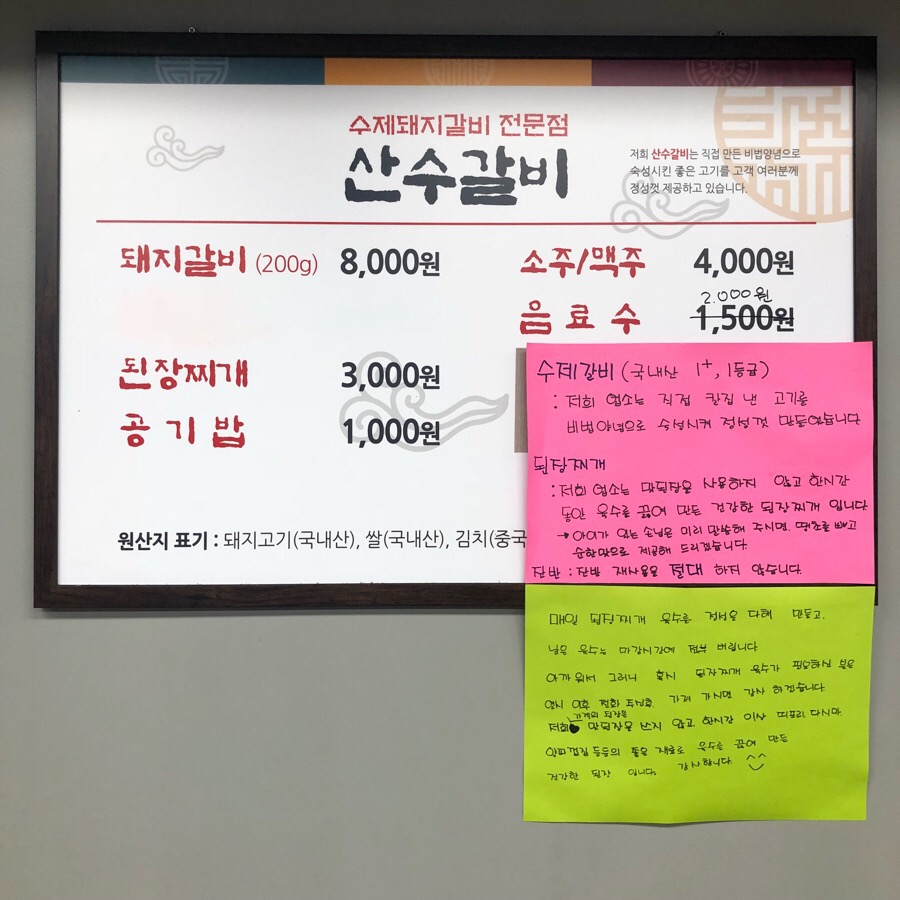 수제돼지갈비 전문점
산수갈비
저희 산수갈비는 직접 만든 비법양념으로
숙성시킨 좋은 고기를 고객 여러분께
정성껏 제공하고 있습니다.
돼지갈비 (200g) 8,000원
소주/맥주 4,000원
2.000원
음료수 1,500원
된장찌개 3,000원
공기밥 1,000원
원산지 표기 : 돼지고기(국내산), 쌀(국내산), 김치(중국
수제갈비 (국내산 1+, 1등급)
: 저희 업소는 직접 칼집 낸 고기를
비법양념으로 숙성시켜 정성껏 만들었습니다
된장찌개
: 저희 업소는 맛된장을 사용하지 않고 한시간
동안 육수를 끓여 만든 건강한 된장찌개 입니다
→ 아이가 있는 손님은 미리 말씀해 주시면, 땡초를 빼고
순한맛으로 제공해 드리겠습니다.
잔반 : 잔반 재사용을 절대 하지 않습니다.
매일 된장찌개 육수를 정성을 다해 만들고,
남은 육수는 마감시간에 전부 버립니다
아까워서 그러니 혹시 된장찌개 육수가 필요하실 분은
이후 전화 주신후, 가져 가시면 감사 하겠습니다
가게의 된장은
저희 맛된장을 쓰지 않고 한시간 이상 띠포리, 다시마,
양파껍질 등등의 좋은 재료로 육수를 끓여 만든
건강한 된장 입니다. 감사합니다. ^^